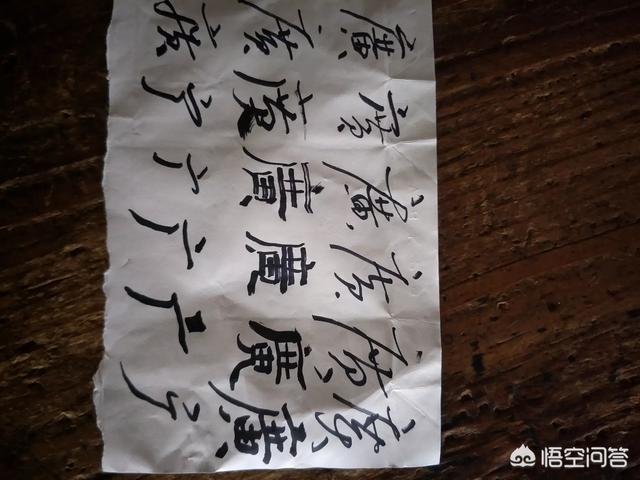 廣廣廣廣廣廣
廣廣廣廣廣廣
广广广广广
悟空问答